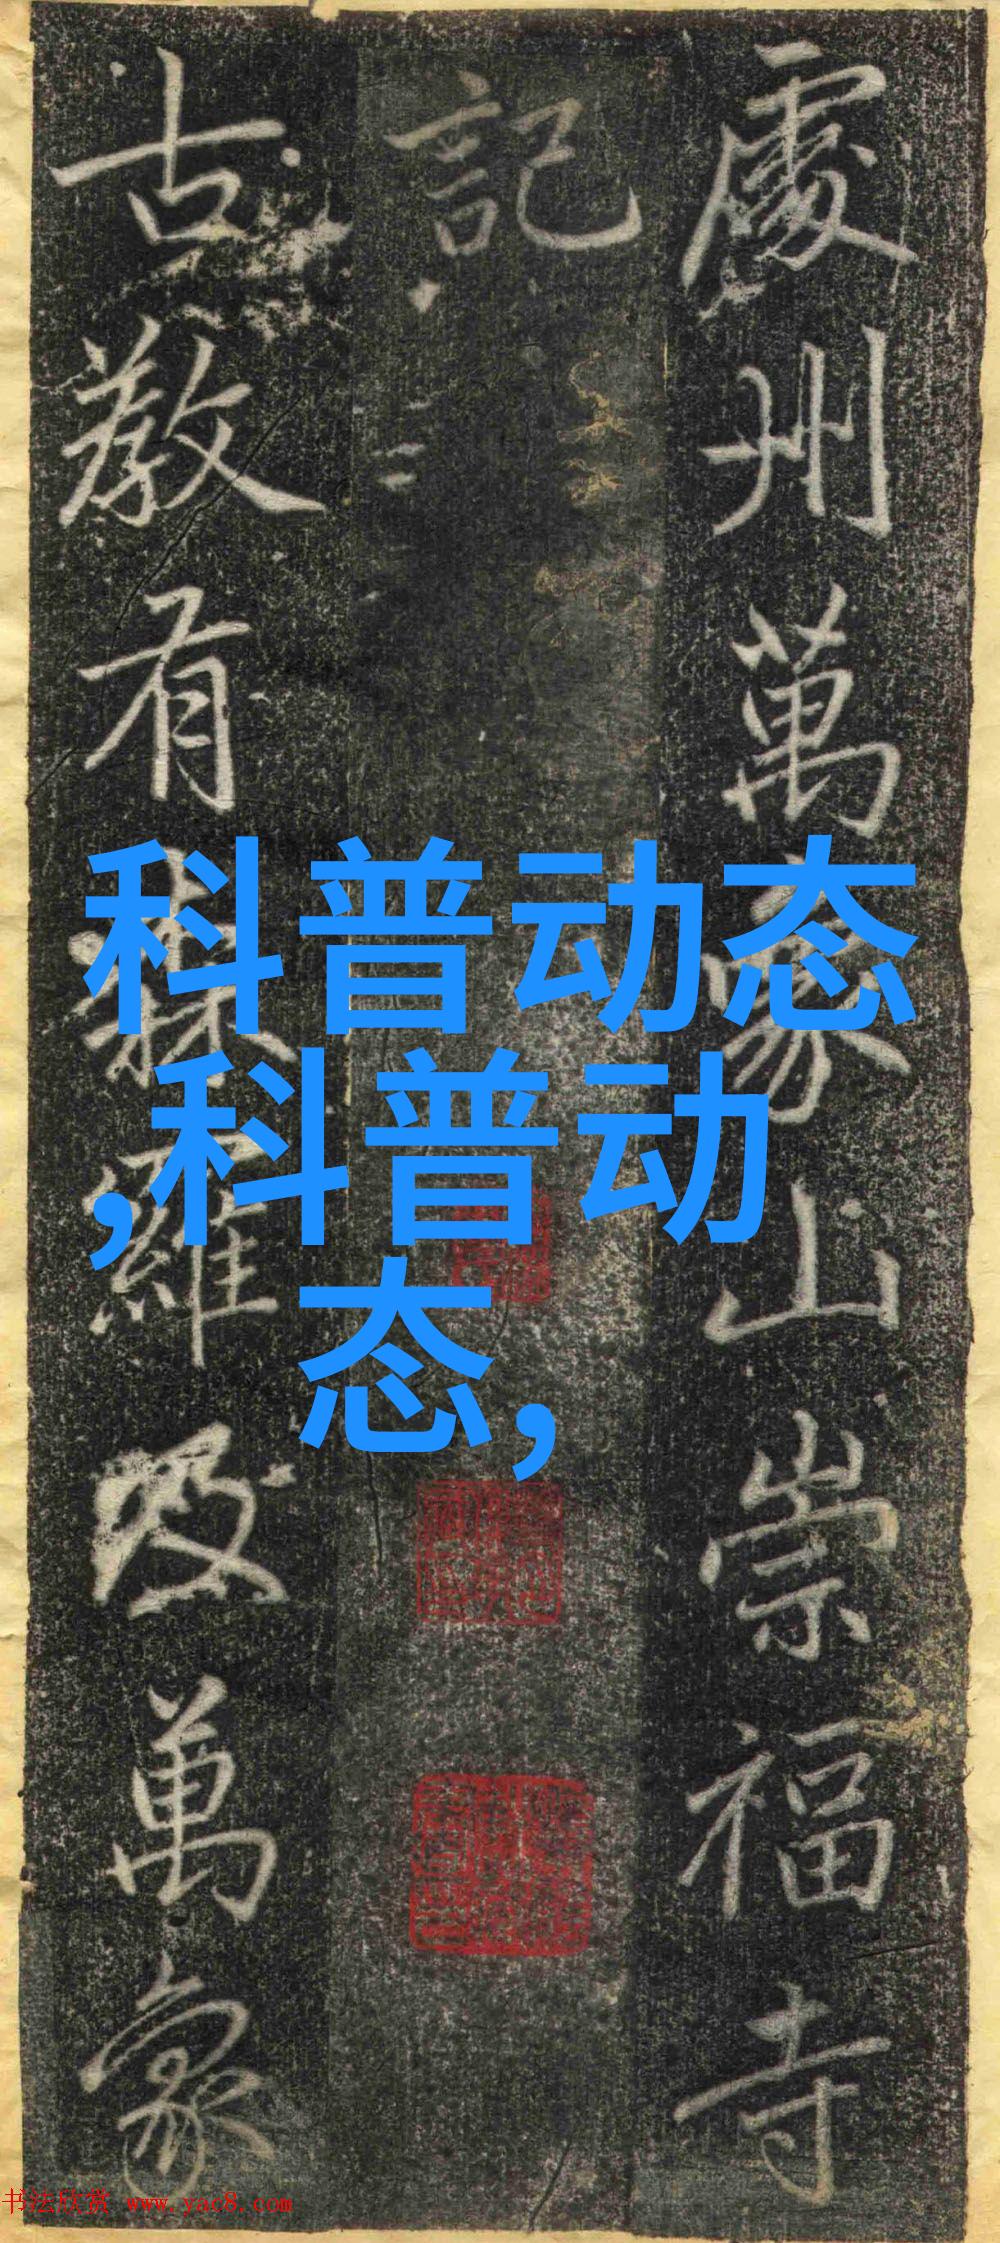 處州萬象山崇福寺
記
古教有森羅及萬象
科普动态
,科普动
态,
书法欣赏 www.yac8.com